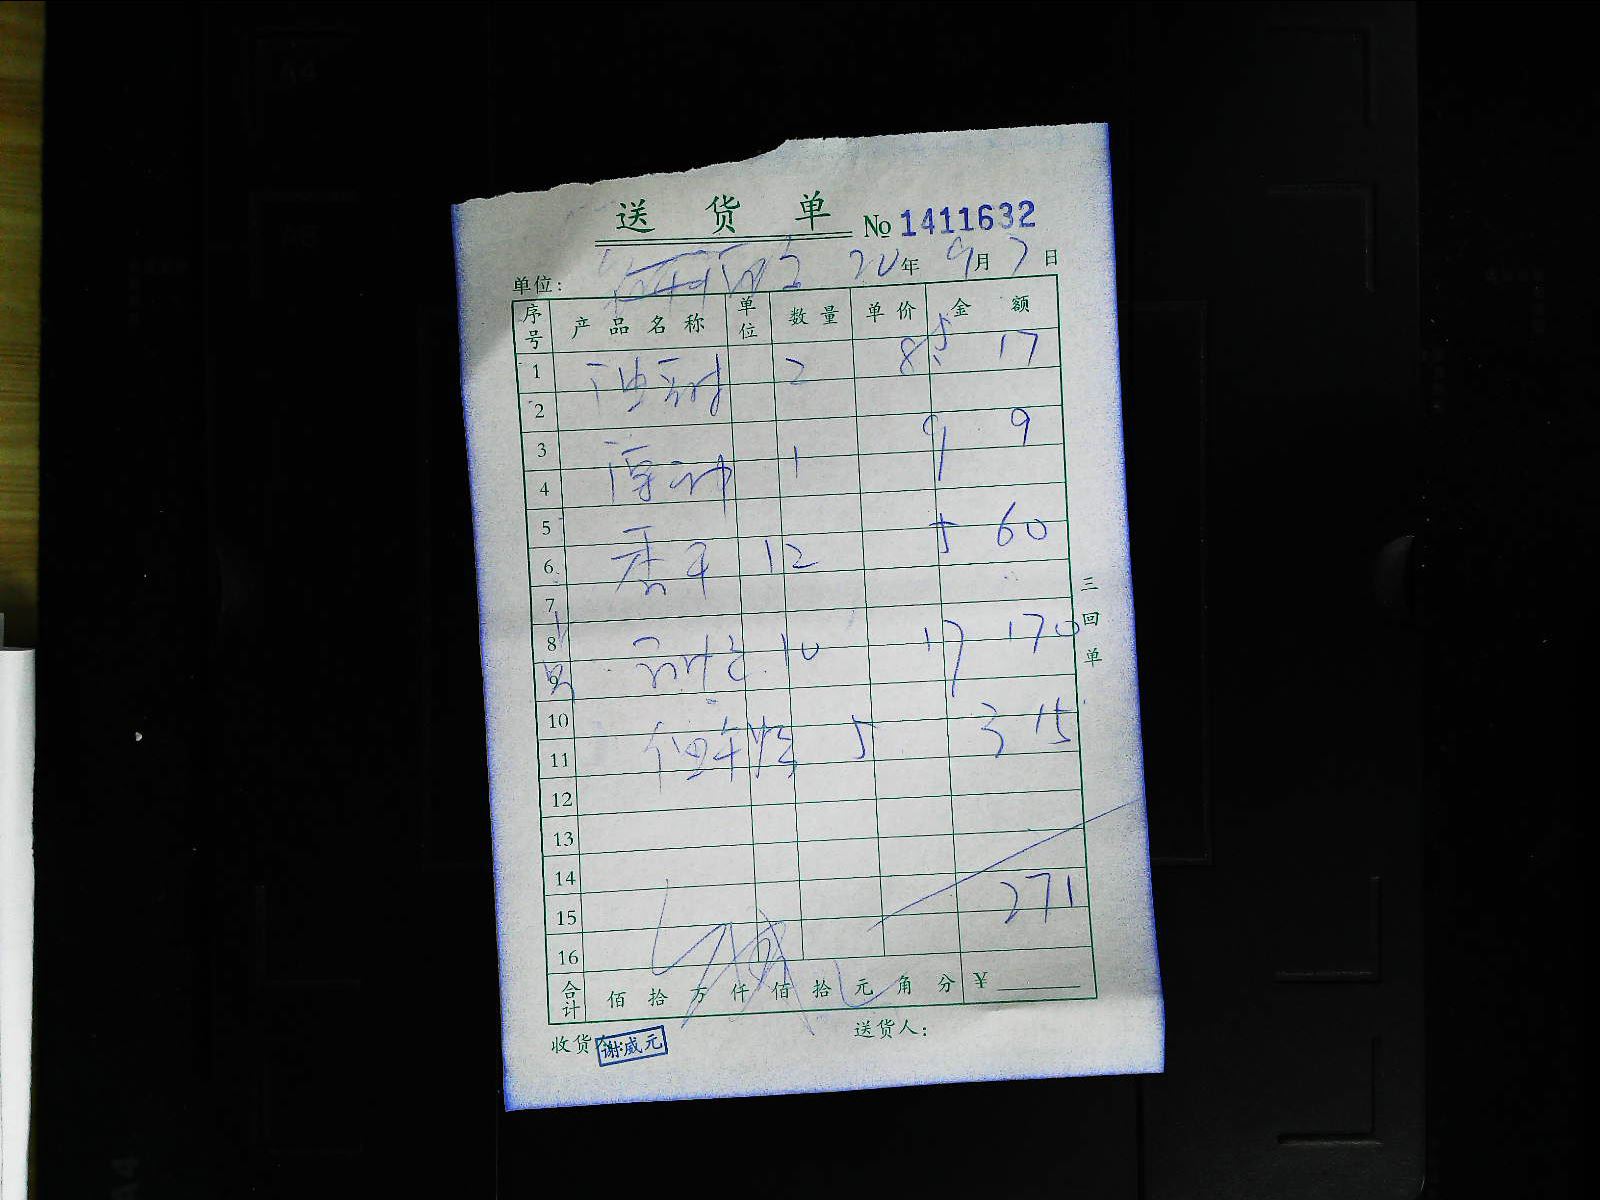 送货单 No 1411632
单位: 20年 9月 7日
序号 产品名称 单位 数量 单价 金额
1 油豆 2 8.5 17
2
3 1 9 9
4
5
6 香干 12 5 60
7
8 10 17 170
9
10
11 5 3 15
12
13
14
15 271
16
合计 佰拾万仟佰拾元角分 ¥
收货 谢威元 送货人:
三回单